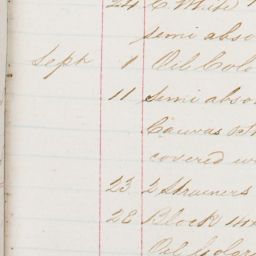 24 C. White
semi abso
Sept 1 Oil Colo
11 Semi abso
Canvas
covered w
23 2 Strainers
28 Block
Oil Colors